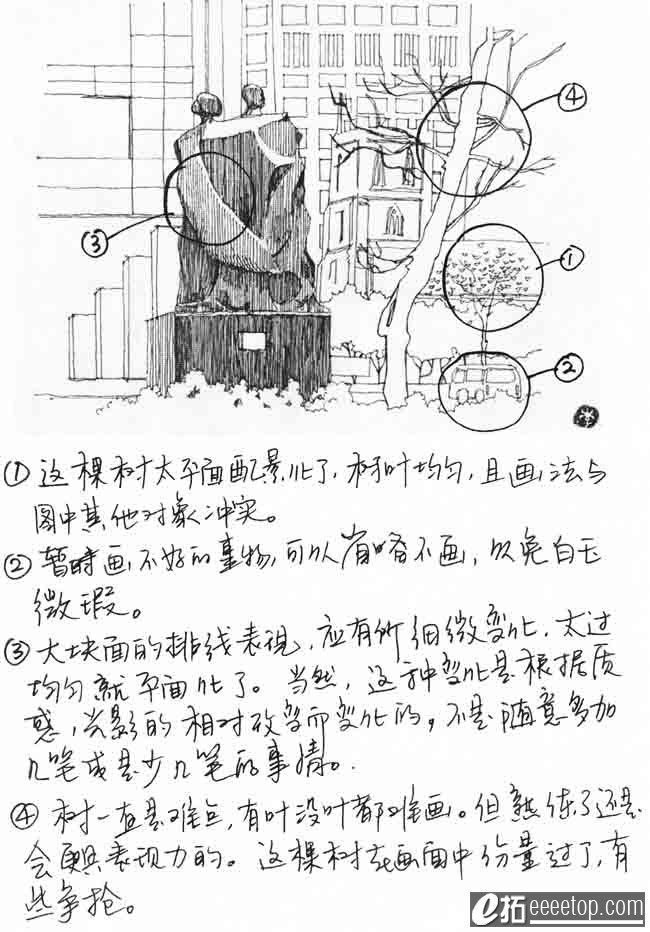 ④
①
③
②
① 这棵树太平面配景化了，树叶均匀，且画法与
图中其他对象冲突。
② 暂时画不好的事物，可以省略不画，以免白玉
微瑕。
③ 大块面的排线表现，应有所细微变化，太过
均匀就平面化了。当然，这种变化是根据质
感，光影的相对改变而变化的，不是随意多加
几笔或是少几笔的事情。
④ 树一直是难点，有叶没叶都难画。但熟练了还是
会更具表现力的。这棵树在画面中份量过了，有
些争抢。
e拓 eeeetop.com